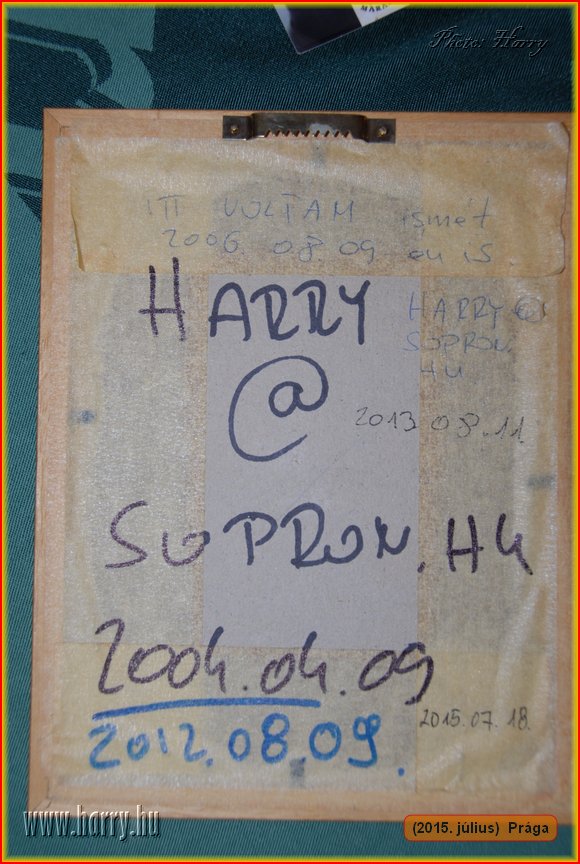 MARA
Photo: Harry
ITT VOLTAM ismét
2006. 08. 09 én is.
HARRY
@
SOPRON.HU
HARRY @
SOPRON.
HU
2013.08.11.
2004.04.09
2012.08.09.
2015.07.18.
www.harry.hu
(2015. július) Prága